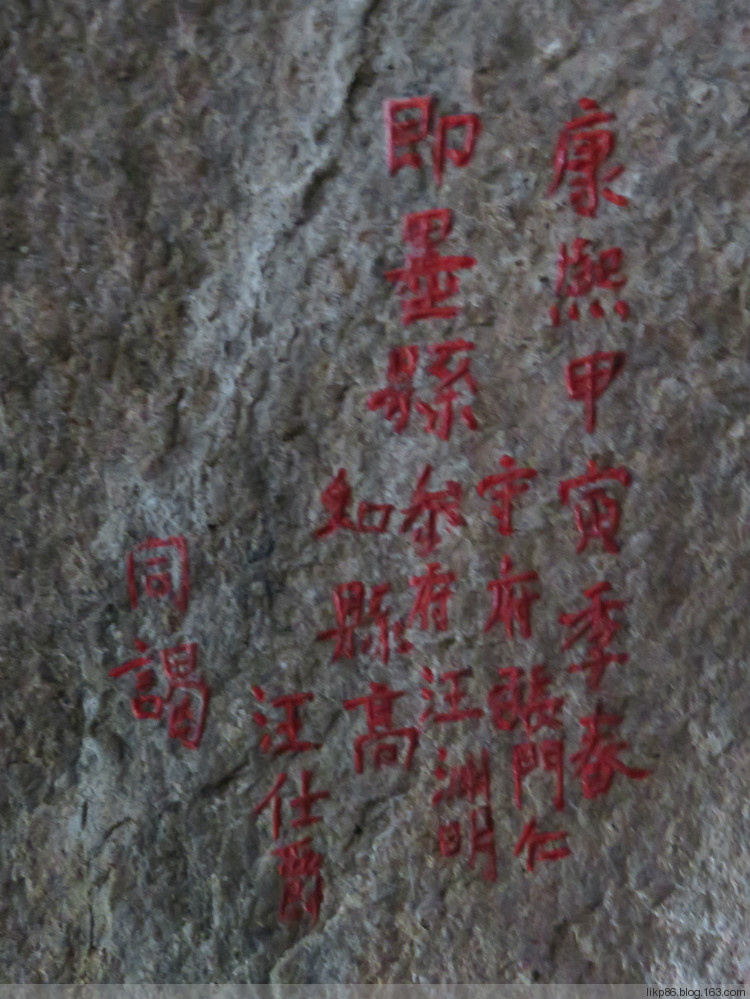 康熙甲寅季春
即墨縣
守府張門仁
參府汪洲明
知縣高
汪仕爵
同謁
likp86.blog.163.com